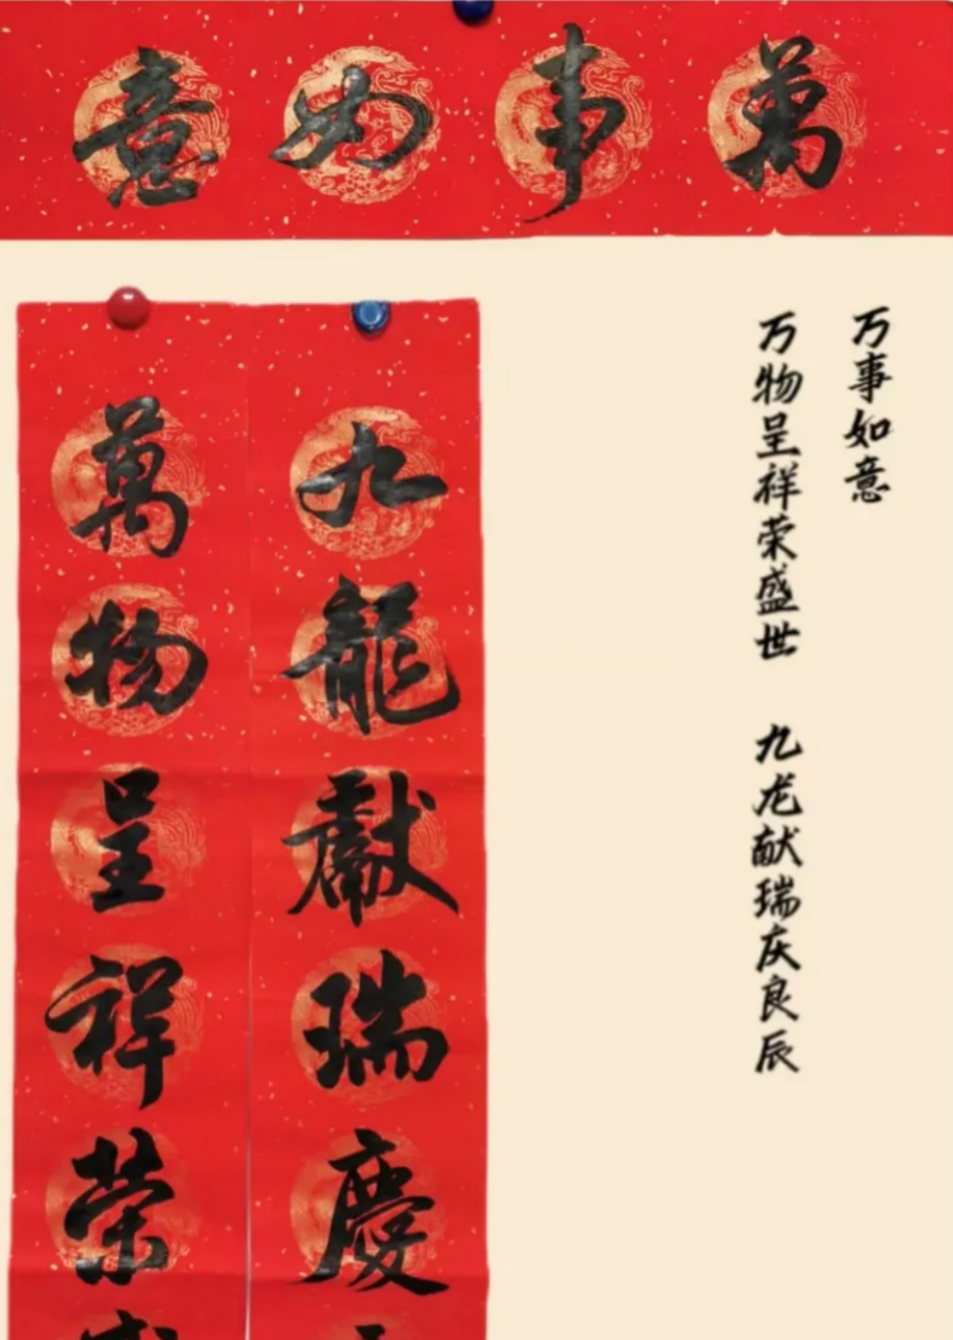 萬事如意
九龍獻瑞慶
萬物呈祥榮
万事如意
万物呈祥荣盛世 九龙献瑞庆良辰